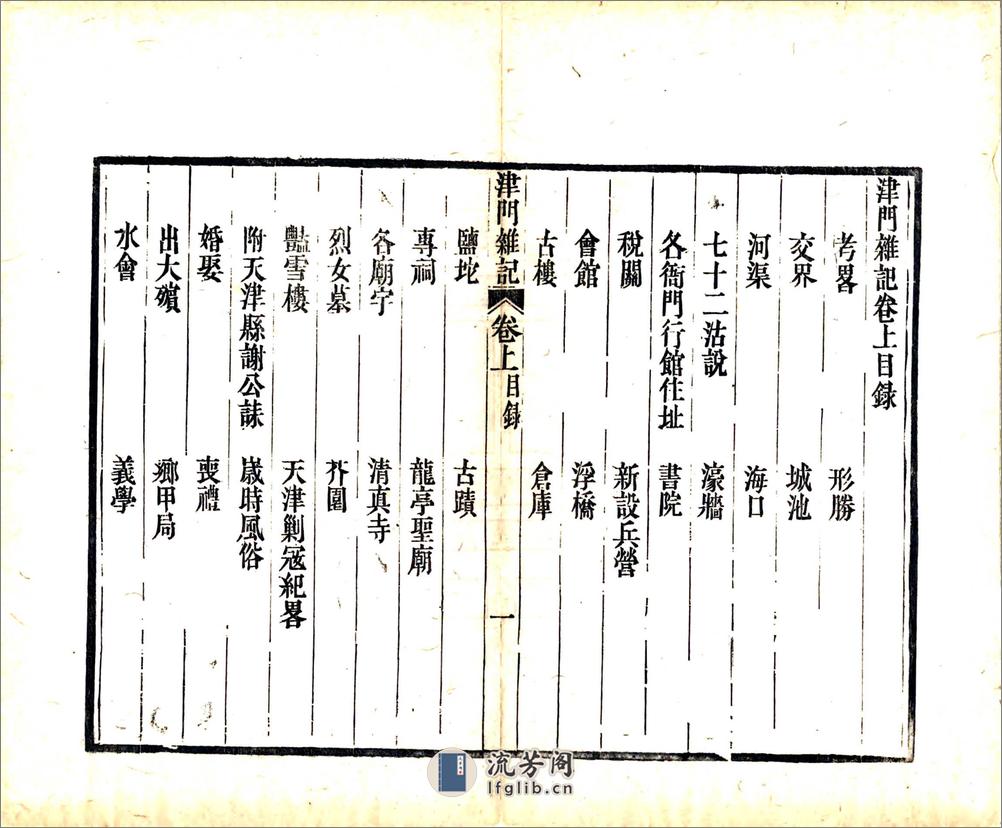 津門雜記卷上目錄
考畧　形勝
交界　城池
河渠　海口
七十二沽說　濠牆
各衙門行館住址　書院
稅關　新設兵營
會館　浮橋
古樓　倉庫
津門雜記　卷上目錄　一
鹽坨　古蹟
專祠　龍亭聖廟
各廟宇　清真寺
烈女墓　芥園
豔雪樓　天津剿寇紀畧
附天津縣謝公誄　歲時風俗
婚娶　喪禮
出大殯　鄉甲局
水會　義學
流芳阁
lfglib.cn